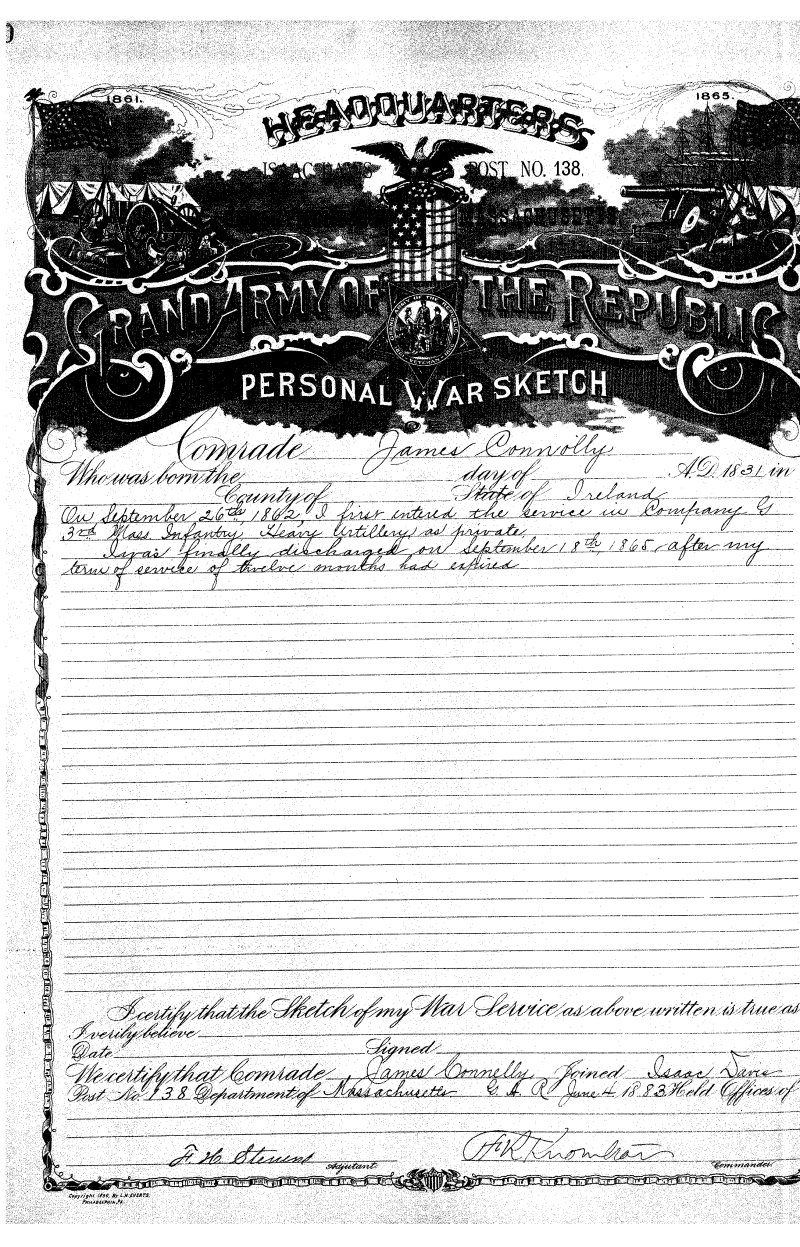 1861.
1865.
HEADQUARTERS
ISAAC DAVIS POST NO. 138.
MASSACHUSETTS
GRAND ARMY OF THE REPUBLIC
PERSONAL WAR SKETCH
Comrade James Connolly
Who was born the day of A.D. 1831 in
County of State of Ireland
On September 26th, 1862, I first intered the service in Company G
3rd Mass Infantry, Heavy Artillery, as private.
I was finally discharged on September 18th, 1865, after my
term of service of twelve months had expired
I certify that the Sketch of my War Service as above written is true as
I verily believe
Date Signed
We certify that Comrade James Connelly Joined Isaac Davis
Post No. 138 Department of Massachusetts G. A. R. June 4 1883 Held Offices of
F. H. Stevens Adjutant.
Commander.
Copyright 1890, By L.H. EVERTS.
PHILADELPHIA, PA.